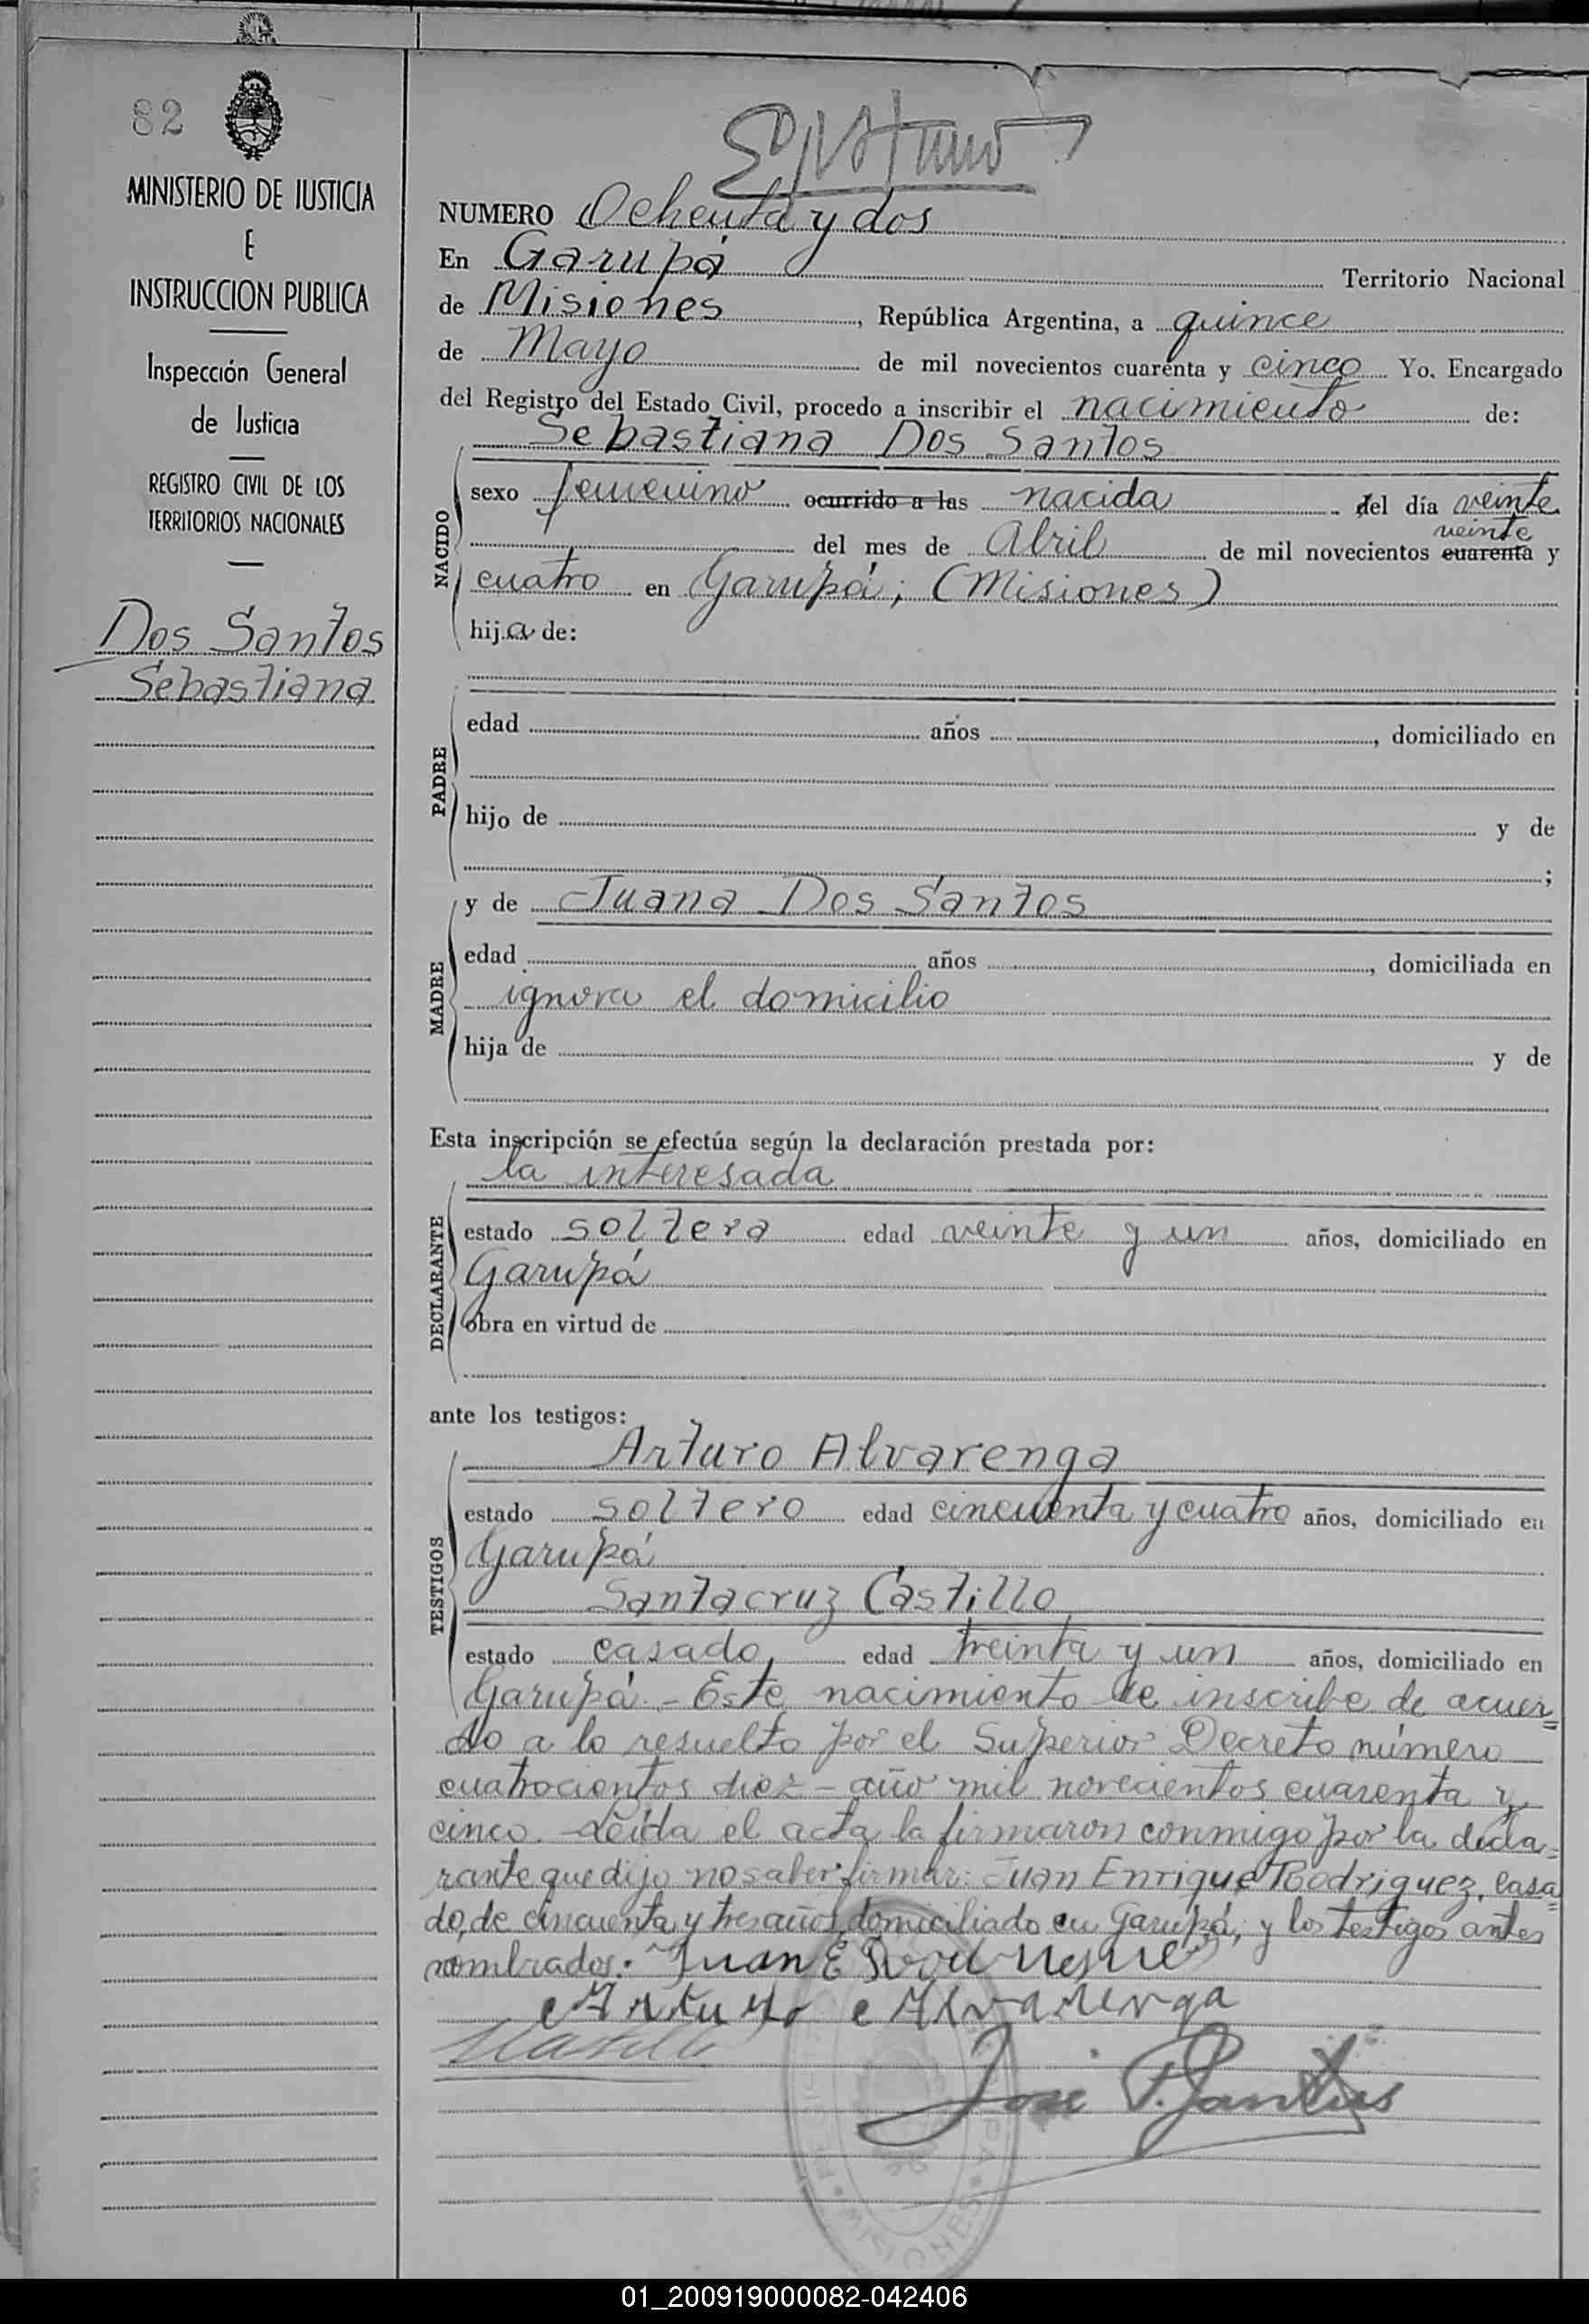 82
MINISTERIO DE JUSTICIA
E
INSTRUCCION PUBLICA
Inspección General
de Justicia
REGISTRO CIVIL DE LOS
TERRITORIOS NACIONALES
Dos Santos
Sebastiana
NUMERO Ochenta y dos
En Garupá Territorio Nacional
de Misiones, República Argentina, a quince
de Mayo de mil novecientos cuarenta y cinco Yo. Encargado
del Registro del Estado Civil, procedo a inscribir el nacimiento de:
Sebastiana Dos Santos
NACIDO
sexo femenino ocurrido a las nacida del día veinte
veinte
del mes de Abril de mil novecientos cuarenta y
cuatro en Garupá; (Misiones)
hija de:
PADRE
edad años , domiciliado en
hijo de y de
;
MADRE
y de Juana Dos Santos
edad años , domiciliada en
ignora el domicilio
hija de y de
Esta inscripción se efectúa según la declaración prestada por:
DECLARANTE
la interesada
estado soltera edad veinte y un años, domiciliado en
Garupá
obra en virtud de
ante los testigos:
TESTIGOS
Arturo Alvarenga
estado soltero edad cincuenta y cuatro años, domiciliado en
Garupá
Santacruz Castillo
estado casado, edad treinta y un años, domiciliado en
Garupá. - Este nacimiento se inscribe de acuer=
do a lo resuelto por el Superior Decreto número
cuatrocientos diez - año mil novecientos cuarenta y
cinco. - Leída el acta la firmaron conmigo por la decla=
rante que dijo no saber firmar: Juan Enrique Rodriguez, casa=
do, de cincuenta y tres años, domiciliado en Garupá; y los testigos antes
nombrados.
Juan E
Arturo Alvarenga
José P.
MISIONES
01_200919000082-042406